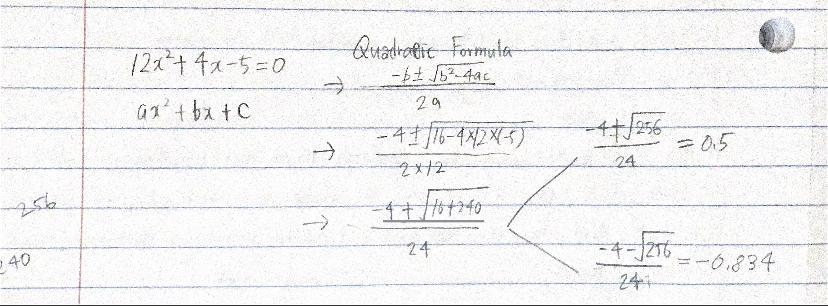 12x²+4x-5=0
ax²+bx+C
Quadratic Formula
→ (-b±√(b²-4ac))/(2a)
→ (-4±√(16-4×12×(-5)))/(2×12)
→ (-4+√(16+240))/24
(-4+√256)/24 = 0.5
(-4-√256)/24 = -0.834
256
240